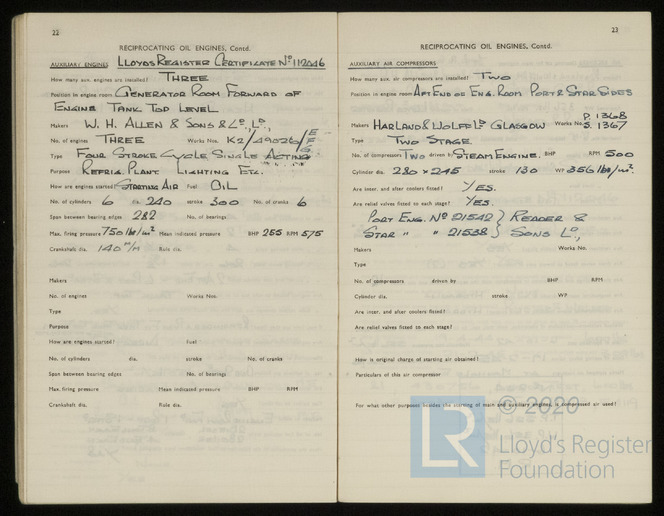 22
RECIPROCATING OIL ENGINES, Contd.
AUXILIARY ENGINES LLOYDS REGISTER CERTIFICATE Nº 112046
How many aux. engines are installed? THREE
Position in engine room GENERATOR ROOM FORWARD OF
ENGINE TANK TOP LEVEL
Makers W. H. ALLEN & SONS & Lᴰ., Lᴰ.,
No. of engines THREE Works Nos. K2/49026/ E F G
Type FOUR STROKE CYCLE SINGLE ACTING
Purpose REFRIG. PLANT LIGHTING ETC.
How are engines started? STARTING AIR Fuel OIL
No. of cylinders 6 dia. 240 stroke 300 No. of cranks 6
Span between bearing edges 282 No. of bearings
Max. firing pressure 750 lb/in² Mean indicated pressure BHP 255 RPM 575
Crankshaft dia. 140 M/M Rule dia.
Makers
No. of engines Works Nos.
Type
Purpose
How are engines started? Fuel
No. of cylinders dia. stroke No. of cranks
Span between bearing edges No. of bearings
Max. firing pressure Mean indicated pressure BHP RPM
Crankshaft dia. Rule dia.
23
RECIPROCATING OIL ENGINES, Contd.
AUXILIARY AIR COMPRESSORS
How many aux. air compressors are installed? TWO
Position in engine room AFT END OF ENG. ROOM PORT & STAR SIDES
Makers HARLAND & WOLFF Lᴰ GLASGOW Works No. P. 1368
S. 1367
Type TWO STAGE
No. of compressors TWO driven by STEAM ENGINE. BHP RPM 500
Cylinder dia. 280 × 245 stroke 130 WP 356 lbs/in².
Are inter. and after coolers fitted? YES.
Are relief valves fitted to each stage? YES.
PORT ENG. Nº 21542 } READER &
STAR " " 21538 } SONS Lᴰ.,
Makers Works No.
Type
No. of compressors driven by BHP RPM
Cylinder dia. stroke WP
Are inter. and after coolers fitted?
Are relief valves fitted to each stage?
How is original charge of starting air obtained?
Particulars of this air compressor
For what other purposes besides the starting of main and auxiliary engines, is compressed air used?
© 2020
LR
Lloyd's Register
Foundation